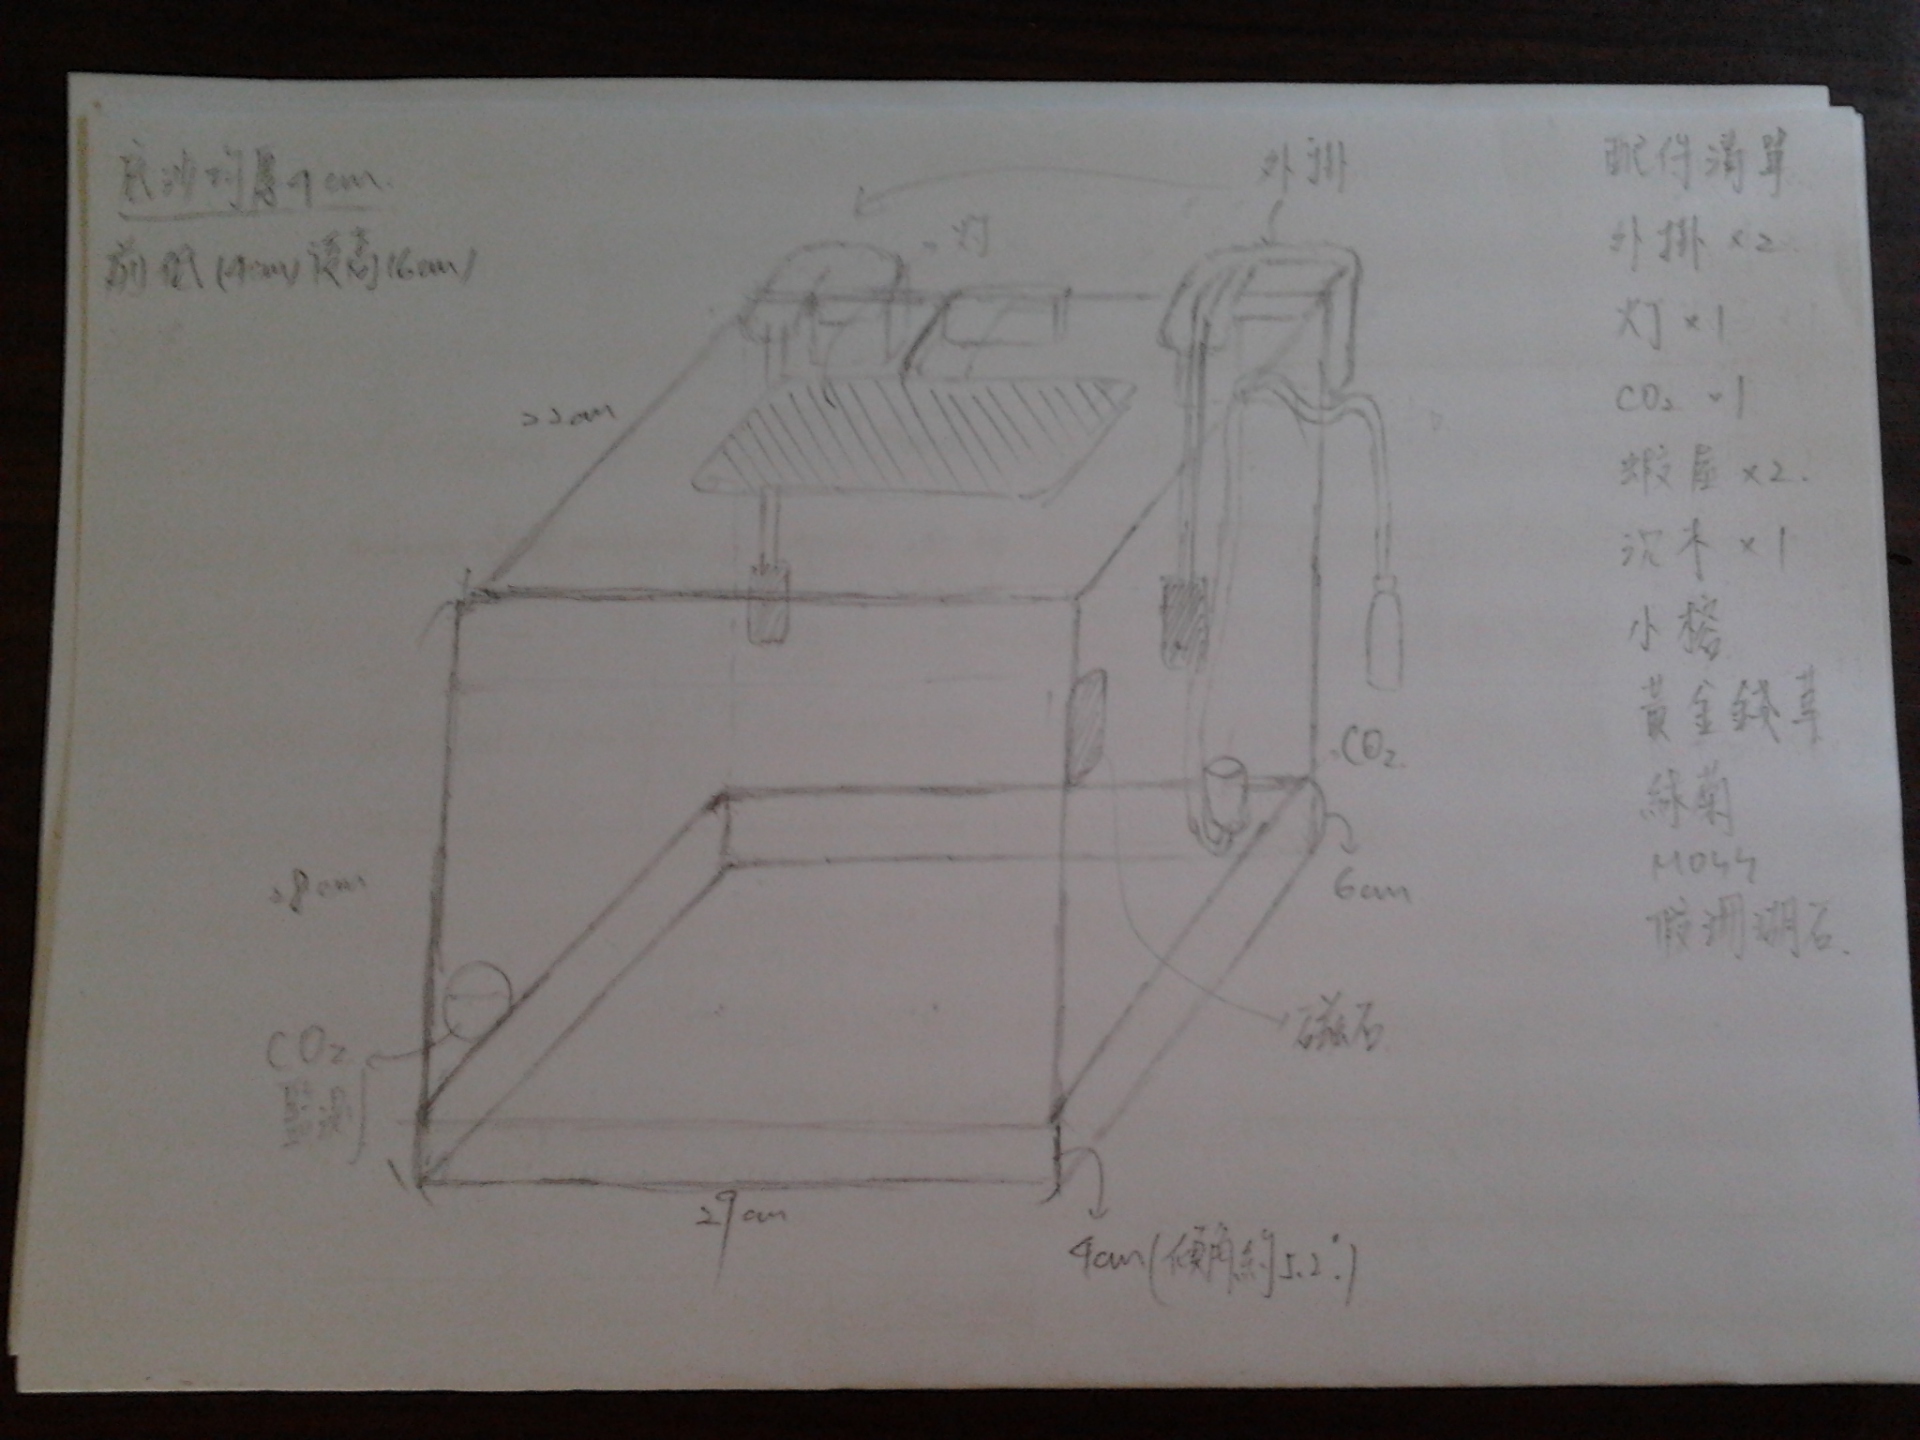 底沙均厚4cm.
前低(4cm)後高(6cm)
外掛
灯
22cm
28cm
CO2
6cm
磁石
CO2
監測
29cm
4cm(傾角約5.2°)
配件清單
外掛×2
灯×1
CO2×1
蝦屋×2.
沉木×1
小榕
黃金錢草
綠菊
Moss
假珊瑚石.